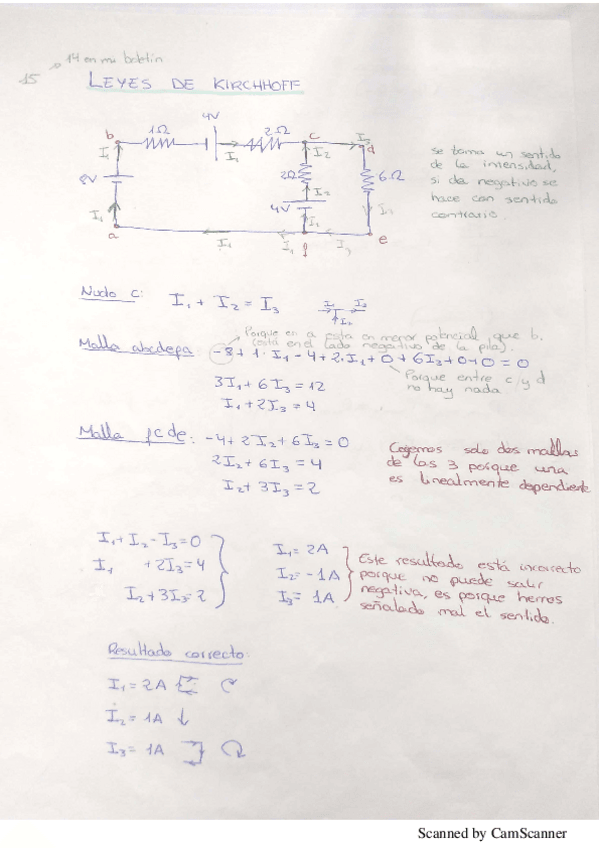 14 en mi boletín
15
LEYES DE KIRCHHOFF
b 1Ω 4V 2Ω c I3 d
I1 I1 I2
8V 2Ω 6Ω
I2
4V
I1 I1 I1 I3
a e
se toma un sentido
de la intensidad,
si da negativo se
hace con sentido
contrario.
Nudo c: I1 + I2 = I3
I1 I3
I2
Porque en a esta en menor potencial que b.
(está en el lado negativo de la pila).
Malla abcdefa: -8 + 1·I1 - 4 + 2·I1 + 0 + 6I3 + 0 + 0 = 0
Porque entre c y d
no hay nada
3I1 + 6I3 = 12
I1 + 2I3 = 4
Malla fcde: -4 + 2I2 + 6I3 = 0
2I2 + 6I3 = 4
I2 + 3I3 = 2
Cogemos solo dos mallas
de las 3 porque una
es linealmente dependiente
I1 + I2 - I3 = 0
I1 + 2I3 = 4
I2 + 3I3 = 2
I1 = 2A
I2 = -1A
I3 = 1A
Este resultado está incorrecto
porque no puede salir
negativa, es porque hemos
señalado mal el sentido.
Resultado correcto:
I1 = 2A
I2 = 1A ↓
I3 = 1A
Scanned by CamScanner